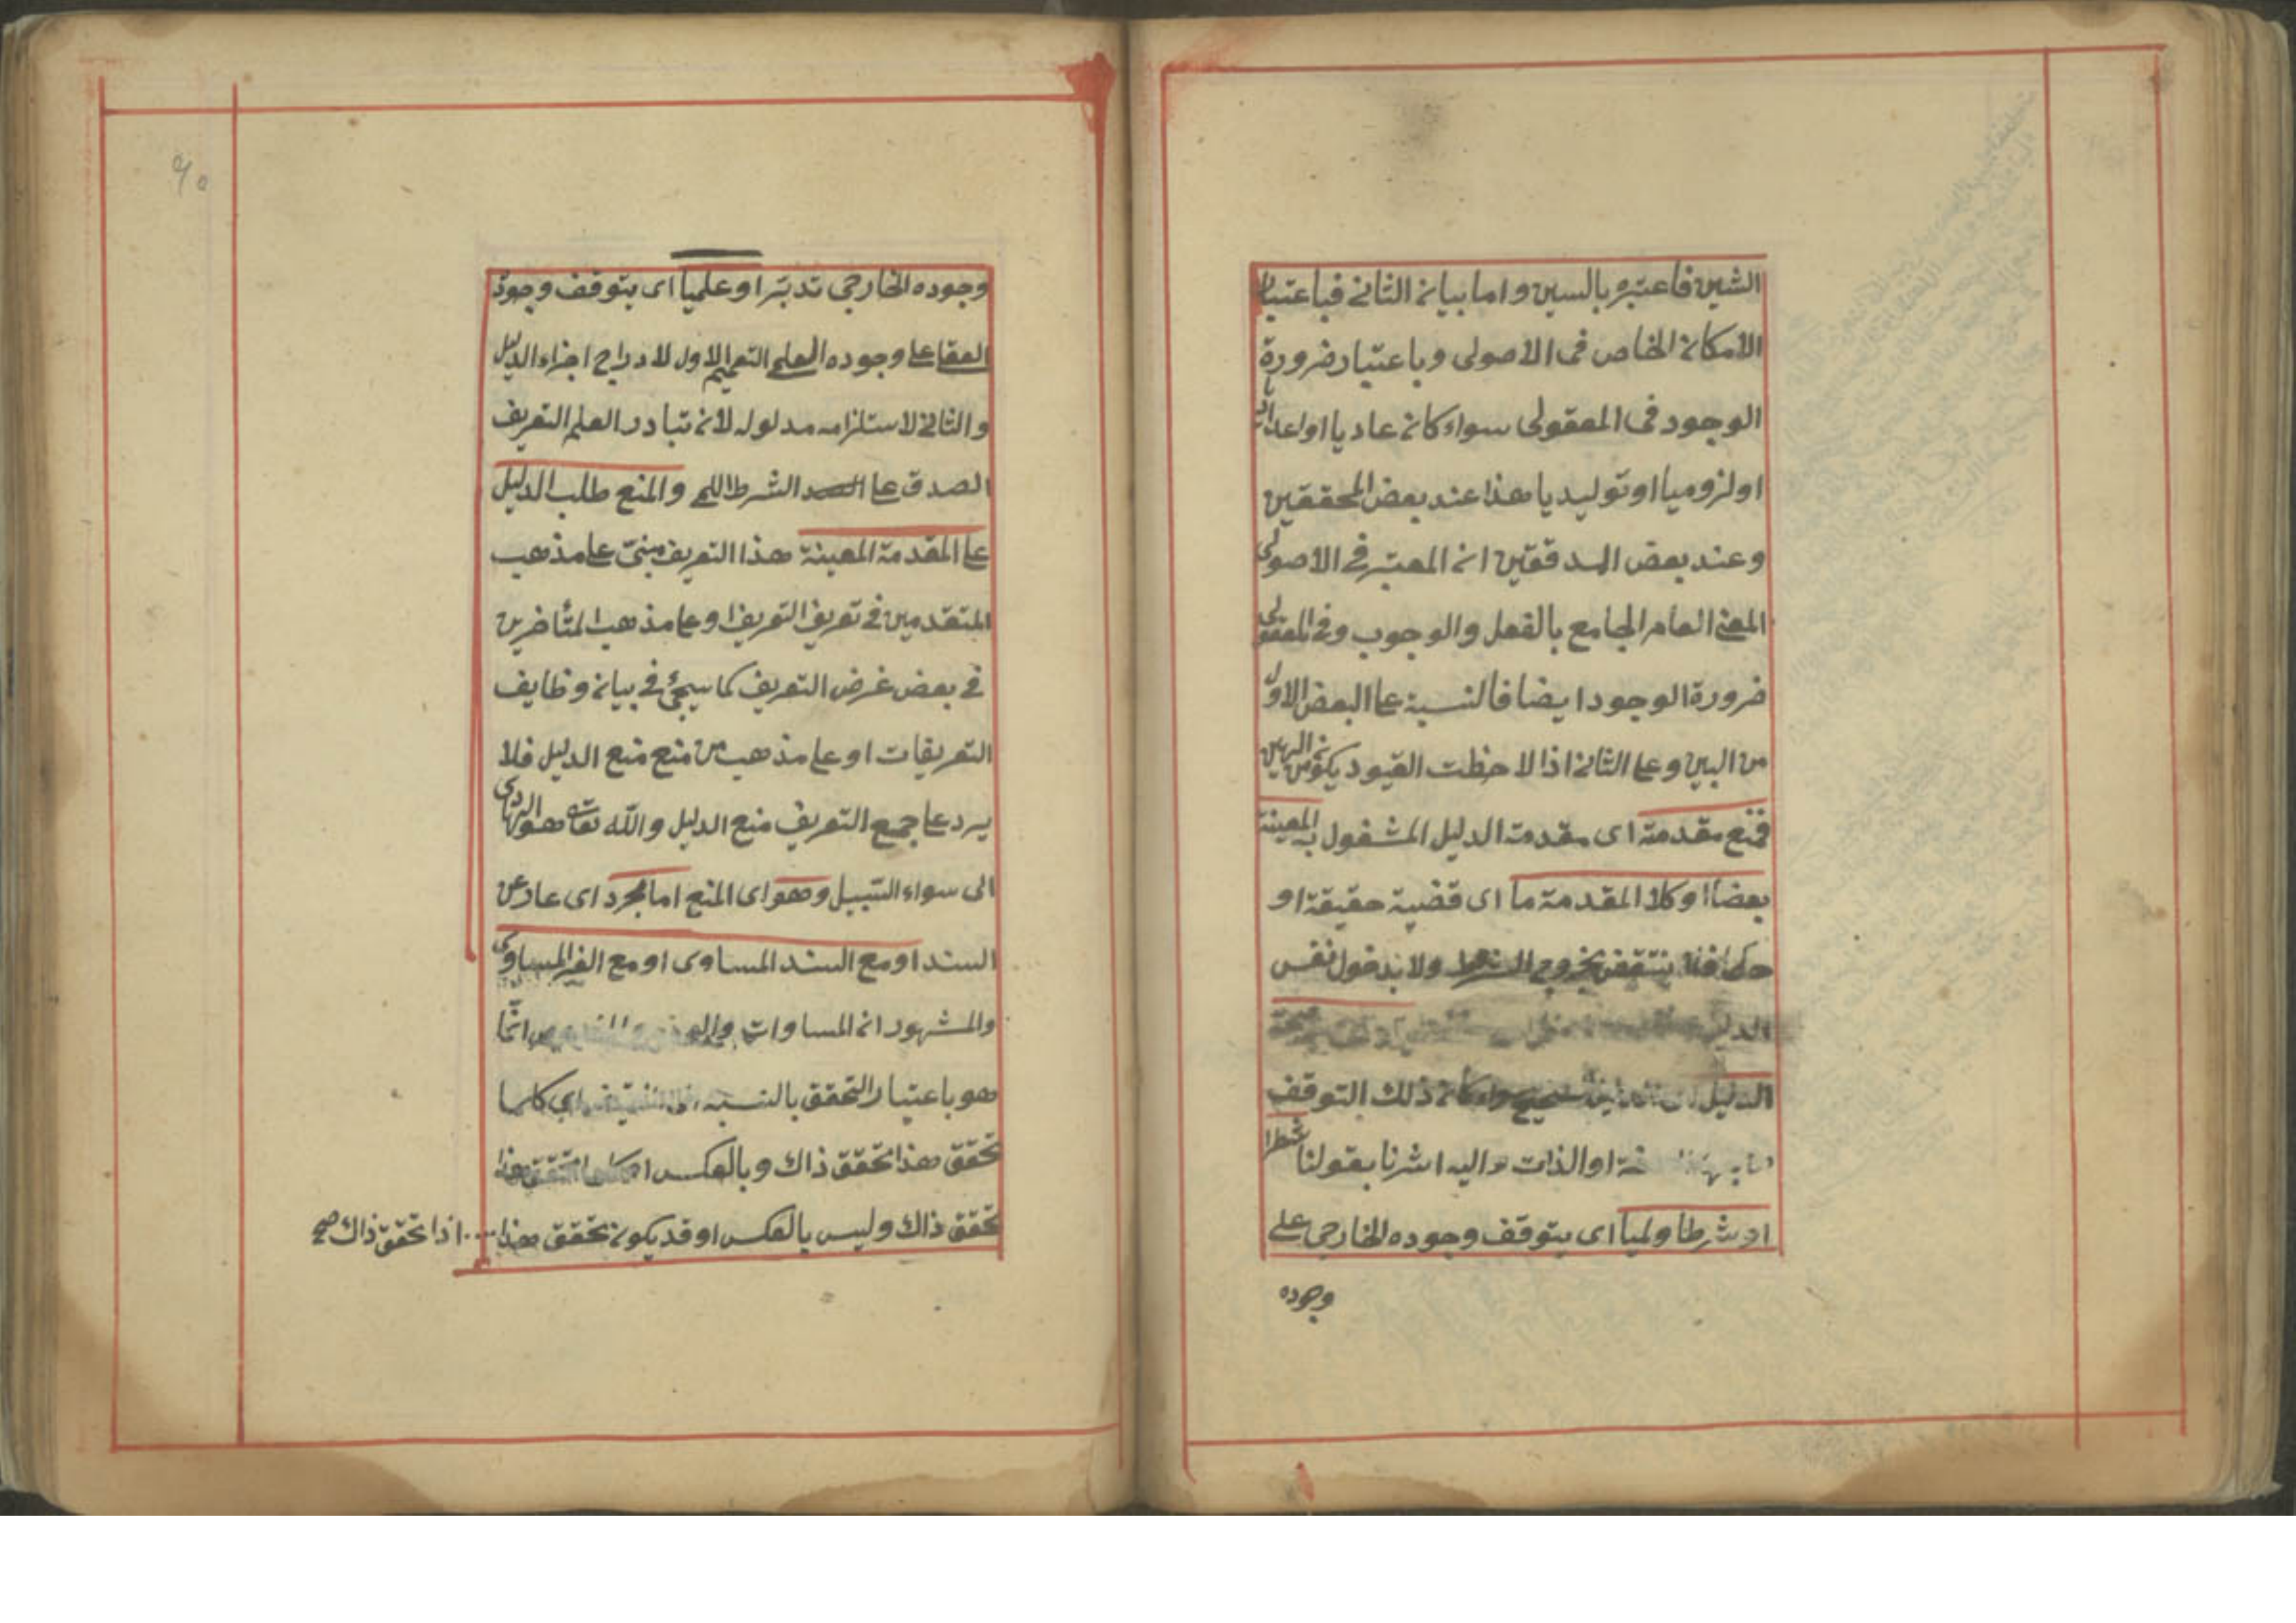 الشين فاعتبره بالسين واما بيان الثاني فباعتبار
الامكان الخاص في الاصولى وباعتبار ضرورة
الوجود في المعقولى سواء كان عاديا او
او لزوميا او توليديا هذا عند بعض المحققين
وعند بعض المدققين ان المعتبر في الاصولى
المعنى العام الجامع بالفعل والوجوب وفي المعقولى
ضرورة الوجود ايضا فالنسبة على البعض الاول
من البين وعلى الثاني اذا لاحظت القيود يكون من
فمنع مقدمة اى مقدمة الدليل المشغول به المعينة
بعضا او كلا المقدمة ما اى قضية حقيقة او
حكما فلا ينتقض بخروج ولا بدخول نفس
الدليل
الدليل كان ذلك التوقف
او الذات واليه اشرنا بقولنا شطرا
او شرطا ولميا اى يتوقف وجوده الخارجى على
وجوده
٩٥
وجوده الخارجى تدبّر او علميا اى يتوقف وجوده
العقلى على وجوده العلمى التعميم الاول لادراج اجزاء الدليل
والثاني لاستلزامه مدلوله لان تبادر العلم التعريف
الصدق على الشرط اللمى والمنع طلب الدليل
على المقدمة المعينة هذا التعريف مبنىّ على مذهب
المتقدمين في تعريف التعريف او على مذهب المتأخرين
في بعض غرض التعريف كما سيجئ في بيان وظايف
التعريفات او على مذهب من منع منع الدليل فلا
يرد على جمع التعريف منع الدليل والله تعالى هو الهادى
الى سواء السّبيل وهو اى المنع اما مجرد اى عار عن
السند او مع السند المساوى او مع الغير المساوى
والمشهور ان المساوات انّما
هو باعتبار التحقق بالنسبة اى كلما
تحقق هذا تحقق ذاك وبالعكس او كلما تحقق هذا
تحقق ذاك وليس بالعكس او قد يكون تحقق هذا .... اذا تحقق ذاك صح